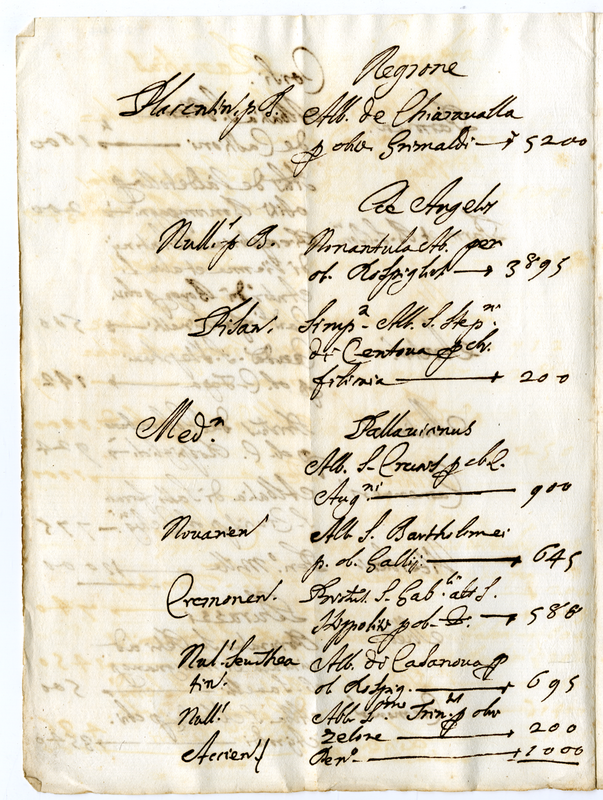 Regione
Florentin. p. B. Alb. de Chiaravalla
p obit. Grimaldi — 5200
De Angelis
Null.s p B. Nonantula Ab. per
ob. Rospiglios — 3895
Pisan. Simp.a Alb. S. Step.ni
di Centoua p ch.
filinia — 200
Med.n Pallauicinus
Alb. S. Crucis p cb.
Aug.ni — 900
Nouarien Alb S. Bartholomei
p. ob. Gallij — 645
Cremonen. S. Gab.lis abb S.
Hippoliti p ob. — 588
Nul.s seu Thea Alb. di Casanoua p
tin. ob Rospig. — 695
Null.s Abb S. Trin. p obit
zelone — 200
Accien. Pen.o — 1000